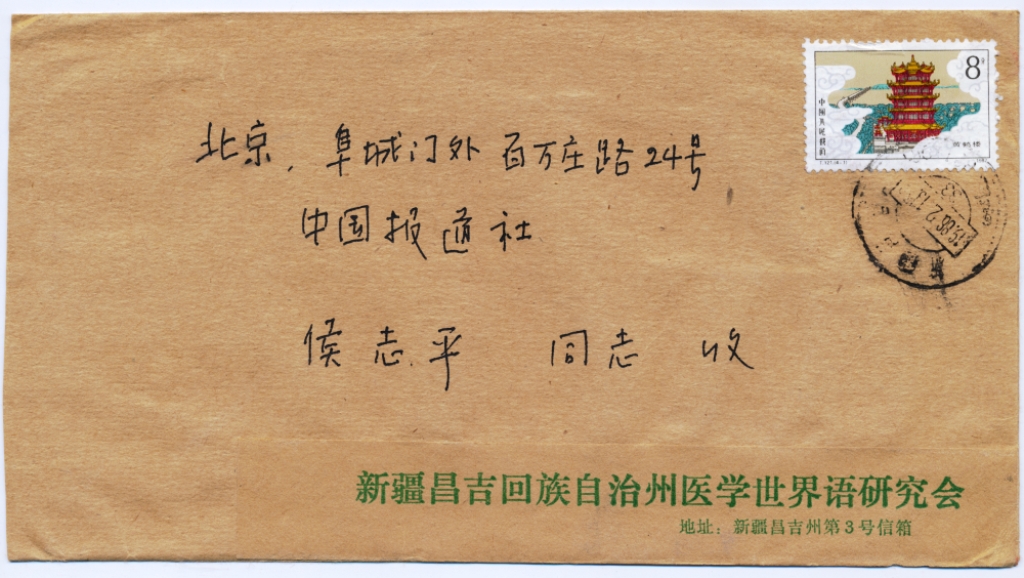 8分
中国人民邮政
黄鹤楼
北京，阜城门外百万庄路24号
中国报道社
侯志平 同志 收
新疆昌吉回族自治州医学世界语研究会
地址：新疆昌吉州第3号信箱